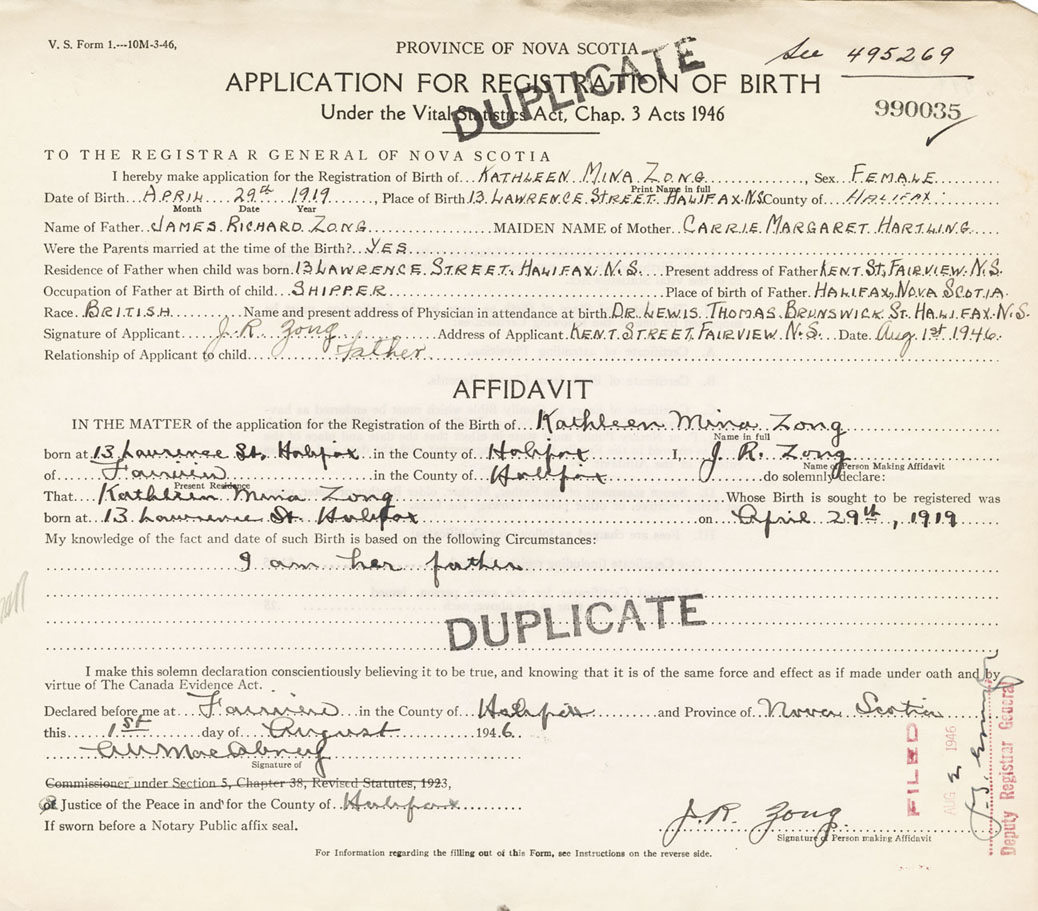 V. S. Form 1.---10M-3-46,
PROVINCE OF NOVA SCOTIA
See 495269
APPLICATION FOR REGISTRATION OF BIRTH
DUPLICATE
Under the Vital Statistics Act, Chap. 3 Acts 1946
990035
TO THE REGISTRAR GENERAL OF NOVA SCOTIA
I hereby make application for the Registration of Birth of KATHLEEN MINA ZONG, Sex FEMALE
Print Name in full
Date of Birth APRIL 29th 1919, Place of Birth 13 LAWRENCE STREET HALIFAX N.S. County of HALIFAX
Month Date Year
Name of Father JAMES RICHARD ZONG MAIDEN NAME of Mother CARRIE MARGARET HARTLING
Were the Parents married at the time of the Birth? YES
Residence of Father when child was born 13 LAWRENCE STREET, HALIFAX, N.S. Present address of Father KENT St, FAIRVIEW N.S.
Occupation of Father at Birth of child SHIPPER Place of birth of Father HALIFAX, NOVA SCOTIA
Race BRITISH, Name and present address of Physician in attendance at birth DR. LEWIS THOMAS BRUNSWICK St. HALIFAX N.S.
Signature of Applicant J. R. Zong Address of Applicant KENT STREET, FAIRVIEW N.S. Date Aug 1st 1946.
Relationship of Applicant to child Father
AFFIDAVIT
IN THE MATTER of the application for the Registration of the Birth of Kathleen Mina Zong
Name in full
born at 13 Lawrence St. Halifax in the County of Halifax I, J. R. Zong
Name of Person Making Affidavit
of Fairview in the County of Halifax do solemnly declare:
Present Residence
That Kathleen Mina Zong Whose Birth is sought to be registered was
born at 13 Lawrence St. Halifax on April 29th, 1919
My knowledge of the fact and date of such Birth is based on the following Circumstances:
I am her father
DUPLICATE
I make this solemn declaration conscientiously believing it to be true, and knowing that it is of the same force and effect as if made under oath and by
virtue of The Canada Evidence Act.
Declared before me at Fairview in the County of Halifax and Province of Nova Scotia
this 1st day of August 1946.
Signature of
Commissioner under Section 5, Chapter 38, Revised Statutes, 1923,
or Justice of the Peace in and for the County of Halifax
If sworn before a Notary Public affix seal.
J. R. Zong
Signature of Person making Affidavit
FILED
AUG 2 1946
Deputy Registrar General
For Information regarding the filling out of this Form, see Instructions on the reverse side.